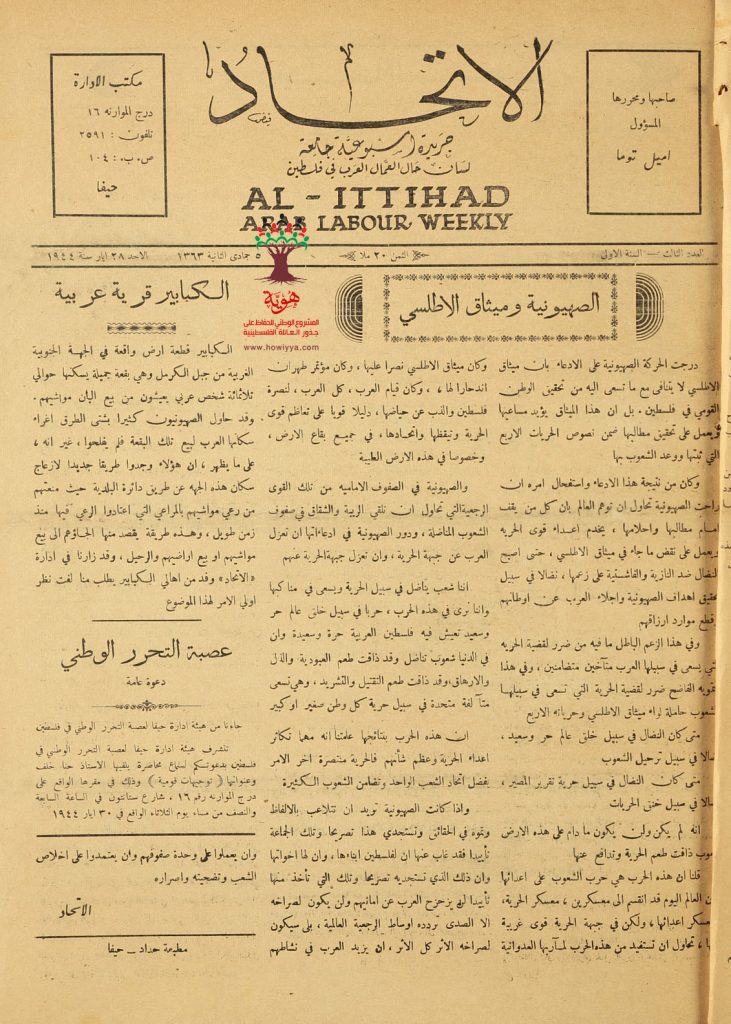 الاتحاد
فيض
جريدة اسبوعية جامعة
لسان حال العمال العرب في فلسطين
AL - ITTIHAD
ARAB LABOUR WEEKLY
صاحبها ومحررها
المسؤول
اميل توما
مكتب الادارة
درج الموارنه ١٦
تلفون : ٢٥٩١
ص. ب. : ١٠٤
حيفا
العدد الثالث — السنة الاولى
الثمن ٢٠ ملا
٥ جمادى الثانية ١٣٦٣
الاحد ٢٨ ايار سنة ١٩٤٤
هوية
المشروع الوطني للحفاظ على
جذور العائلة الفلسطينية
www.howiyya.com
الصهيونية وميثاق الاطلسي
درجت الحركة الصهيونية على الادعاء بان ميثاق
الاطلسي لا يتنافى مع ما تسعى اليه من تحقيق الوطن
القومي في فلسطين. بل ان هذا الميثاق يؤيد مساعيها
ويعمل على تحقيق مطالبها ضمن نصوص الحريات الاربع
التي ثبتها ووعد الشعوب بها
وكان من نتيجة هذا الادعاء واستفحال امره ان
راحت الصهيونية تحاول ان توهم العالم بان كل من يقف
امام مطالبها واحلامها ، يخدم اعداء قوى الحريه
ويعمل على نقض ما جاء في ميثاق الاطلسي ، حتى اصبح
النضال ضد النازية والفاشستية على زعمها ، نضالا في سبيل
تحقيق اهداف الصهيونية واجلاء العرب عن اوطانهم
وقطع موارد ارزاقهم
وفي هذا الزعم الباطل ما فيه من ضرر لقضية الحريه
التي يسعى في سبيلها العرب متآخين متضامنين ، وفي هذا
التمويه الفاضح ضرر لقضية الحرية التي تسعى في سبيلها
شعوب حاملة لواء ميثاق الاطلسي وحرياته الاربع
متى كان النضال في سبيل خلق عالم حر وسعيد ،
نضالا في سبيل ترحيل الشعوب
متى كان النضال في سبيل حرية تقرير المصير ،
نضالا في سبيل خنق الحريات
انه لم يكن ولن يكون ما دام على هذه الارض
شعوب ذاقت طعم الحرية وتدافع عنها
قلنا ان هذه الحرب هي حرب الشعوب على اعدائها
ان العالم اليوم قد انقسم الى معسكرين ، معسكر الحرية،
ومعسكر اعدائها ، ولكن في جبهة الحرية قوى غريبة
تحاول ان تستفيد من هذه الحرب لمآربها العدوانية
وكان ميثاق الاطلسي نصرا عليها ، وكان مؤتمر طهران
اندحارا لها ، وكان قيام العرب ، كل العرب ، لنصرة
فلسطين والذب عن حياضها ، دليلا قويا على تعاظم قوى
الحرية وتيقظها واتحادها، في جميع بقاع الارض ،
وخصوصا في هذه الارض الطيبة
والصهيونية في الصفوف الاماميه من تلك القوى
الرجعية التي تحاول ان تلقي الريبة والشقاق في صفوف
الشعوب المناضلة ، ودور الصهيونية في ادعاءاتها ان تعزل
العرب عن جبهة الحرية ، وان تعزل جبهة الحرية عنهم
اننا شعب يناضل في سبيل الحرية ويسعى في مناكبها
واننا نرى في هذه الحرب ، حربا في سبيل خلق عالم حر
وسعيد تعيش فيه فلسطين العربية حرة وسعيدة وان
في الدنيا شعوب تناضل وقد ذاقت طعم العبودية والذل
والارهاق، وقد ذاقت طعم التقتيل والتشريد ، وهي تسعى
متآلفة متحدة في سبيل حرية كل وطن صغير او كبير
ان هذه الحرب بنتائجها علمتنا انه مهما تكاثر
اعداء الحرية وعظم شأنهم فالحرية منتصرة اخر الامر
بفضل اتحاد الشعب الواحد وتضامن الشعوب الكثيرة
واذا كانت الصهيونية تريد ان تتلاعب بالالفاظ
وتموه في الحقائق وتستجدي هذا تصريحا وتلك الجماعة
تأييدا فقد غاب عنها ان لفلسطين ابناءها ، وان لها اخواتها
وان ذلك الذي تستجديه تصريحا وتلك التي تأخذ منها
تأييدا لن يزحزح العرب عن امانيهم ولن يكون لصراخه
الا الصدى تردده اوساط الرجعية العالمية ، بل سيكون
لصراخه الأثر كل الأثر ، ان يزيد العرب في نشاطهم
الكبابير قرية عربية
الكبابير قطعة ارض واقعة في الجهة الجنوبية
الغربية من جبل الكرمل وهي بقعة جميلة يسكنها حوالي
ثلاثمائة شخص عربي يعيشون من بيع البان مواشيهم .
وقد حاول الصهيونيون كثيرا بشتى الطرق اغراء
سكانها العرب لبيع تلك البقعة فلم يفلحوا ، غير انه ،
على ما يظهر ، ان هؤلاء وجدوا طريقا جديدا لازعاج
سكان هذه الجهه عن طريق دائرة البلدية حيث منعتهم
من رعي مواشيهم بالمراعي التي اعتادوا الرعي فيها منذ
زمن طويل ، وهذه طريقة يقصد منها الجاؤهم الى بيع
مواشيهم او بيع اراضيهم والرحيل ، وقد زارنا في ادارة
«الاتحاد» وفد من اهالي الكبابير يطلب منا لفت نظر
اولي الامر لهذا الموضوع
عصبة التحرر الوطني
دعوة عامة
جاءنا من هيئة ادارة حيفا لعصبة التحرر الوطني في فلسطين
تتشرف هيئة ادارة حيفا لعصبة التحرر الوطني في
فلسطين بدعوتكم لسماع محاضرة يلقيها الاستاذ حنا خلف
وعنوانها ( توجيهات قومية ) وذلك في مقرها الواقع على
درج الموارنه رقم ١٦ ، شارع ستانتون في الساعة السابعة
والنصف من مساء يوم الثلاثاء الواقع في ٣٠ ايار ١٩٤٤
وان يعملوا على وحدة صفوفهم وان يعتمدوا على اخلاص
الشعب وتضحيته واصراره
الاتحاد
مطبعة حداد — حيفا